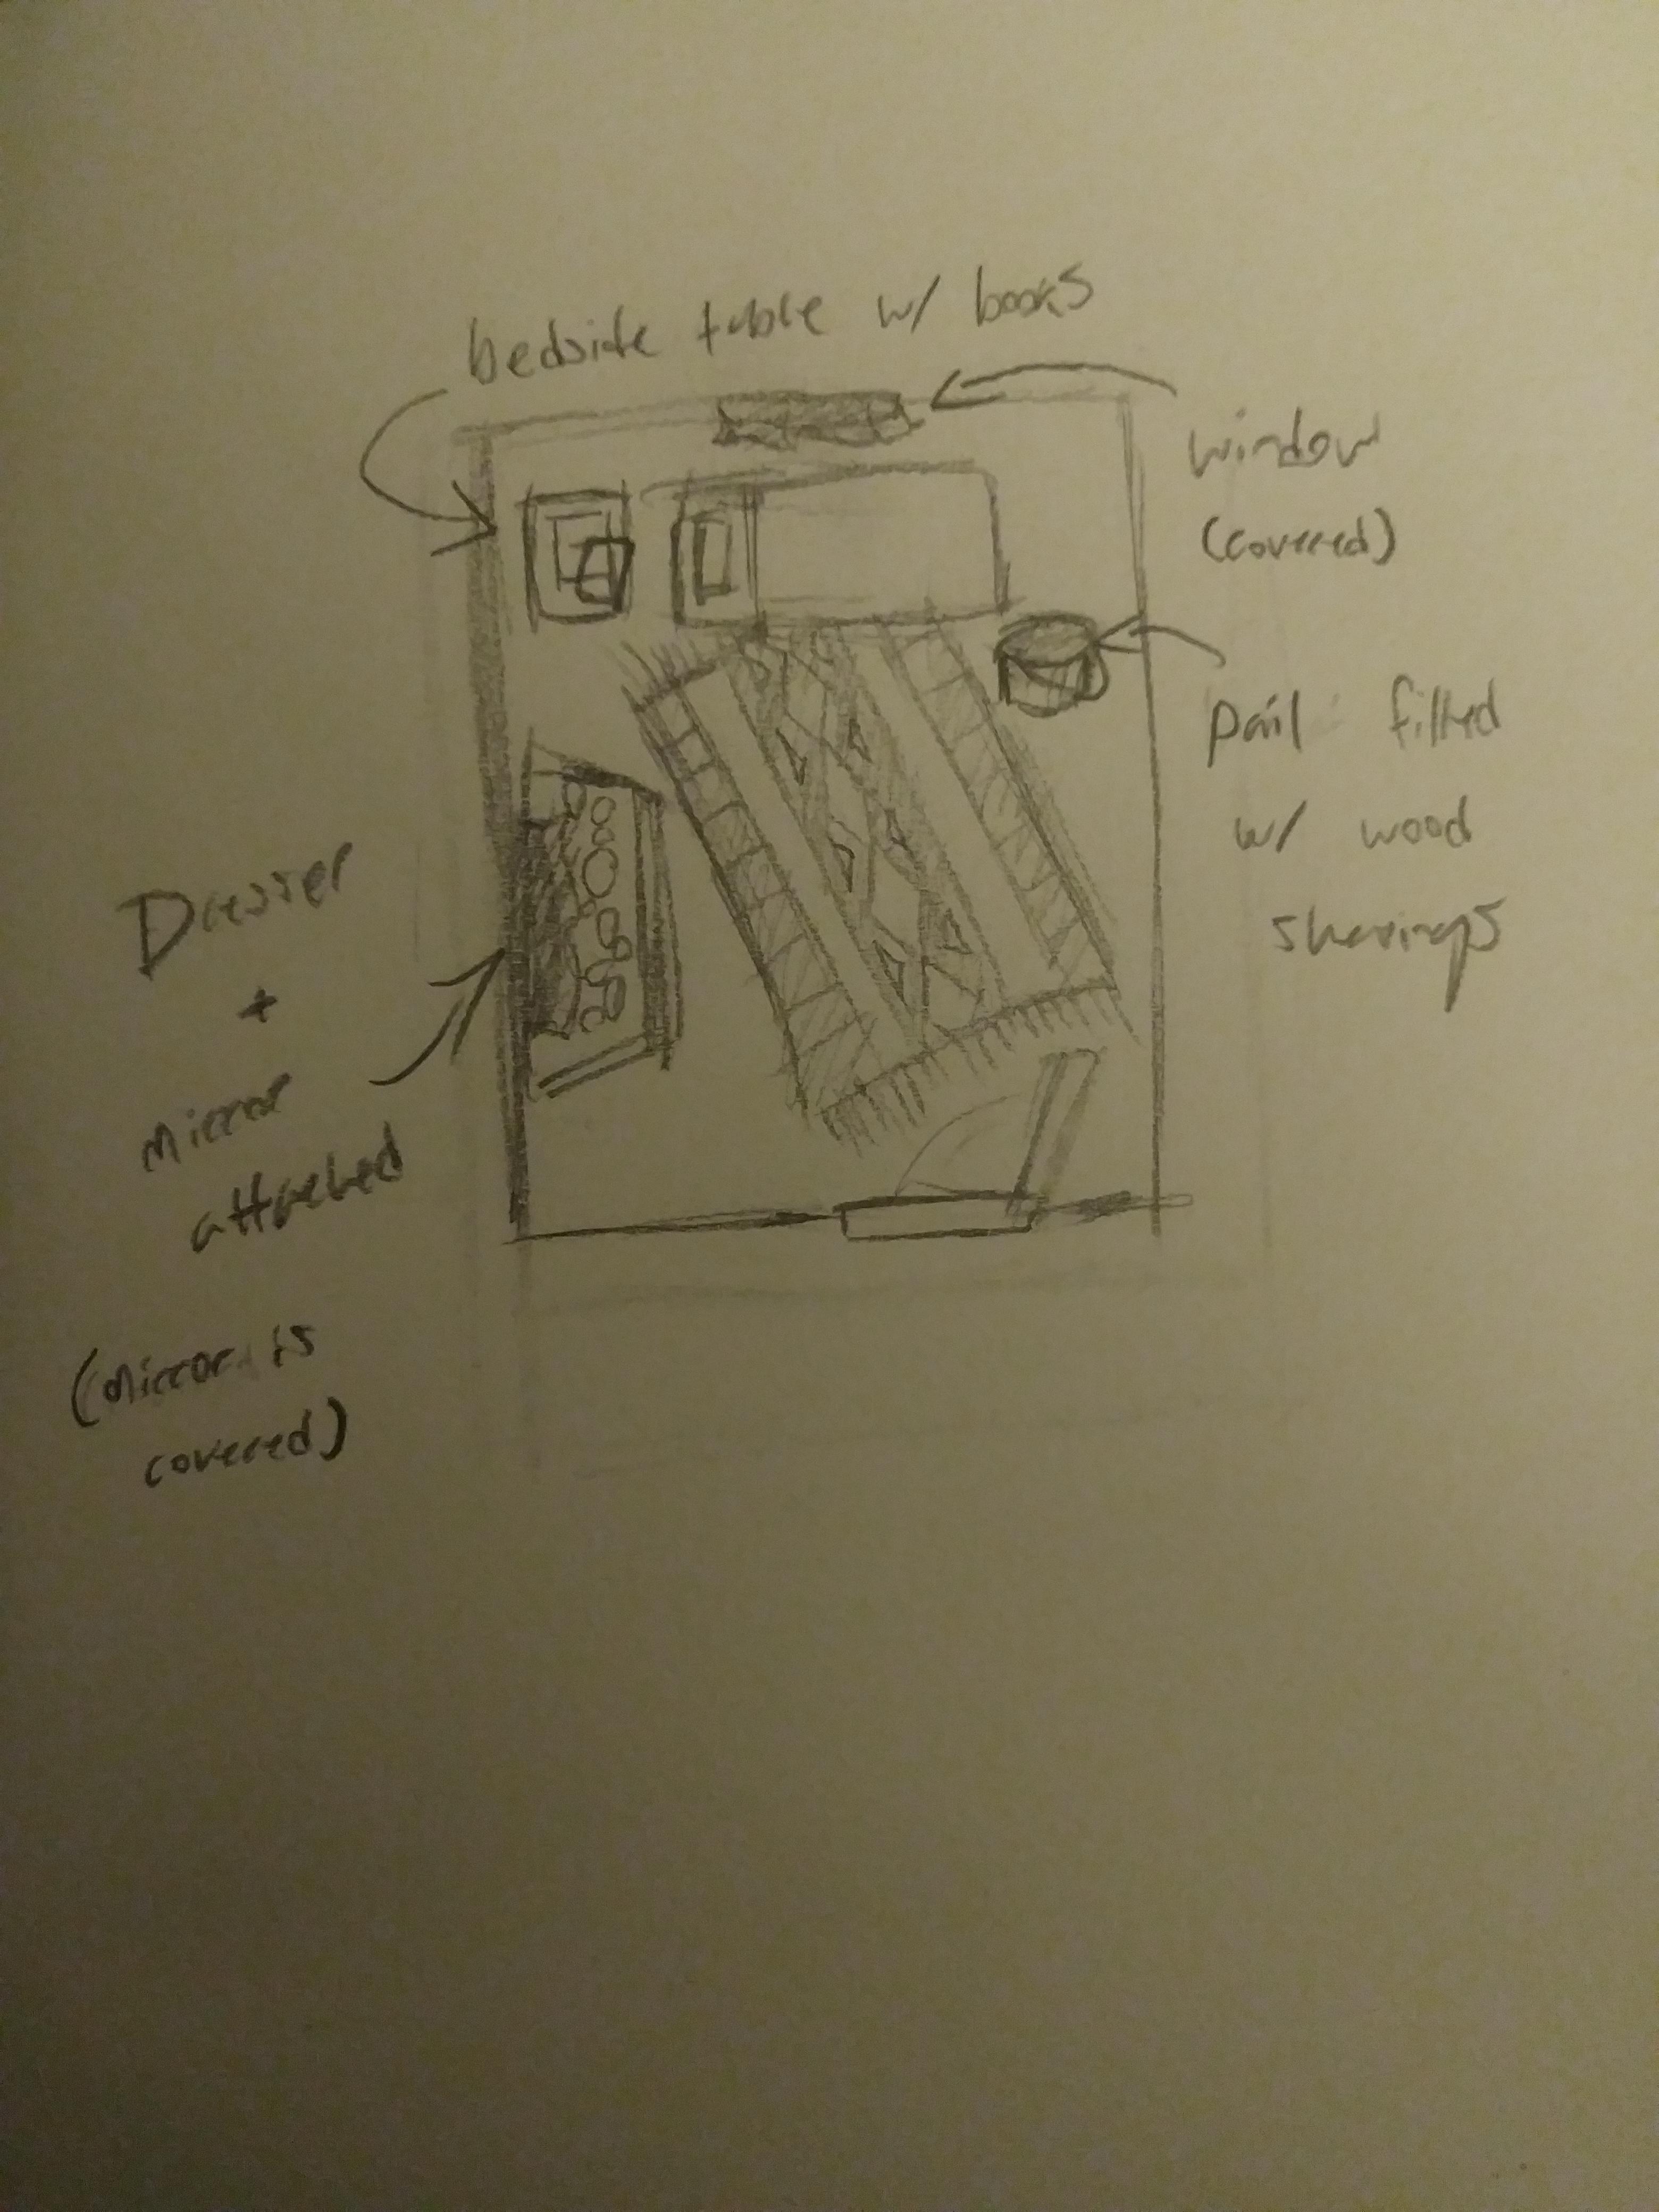 bedside table w/ books
window
(covered)
pail filled
w/ wood
shavings
Dresser
+
mirror
attached
(mirror is
covered)